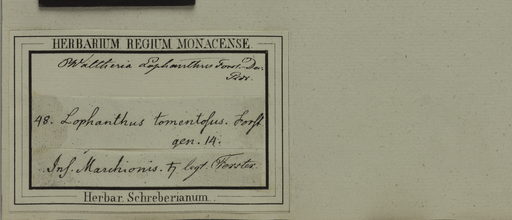 HERBARIUM REGIUM MONACENSE
Waltheria Lophanthus Forst.
48. Lophanthus tomentosus. Forst
gen. 14.
Ins. Marchionis. ♄ legt. Forster.
Herbar. Schreberianum.